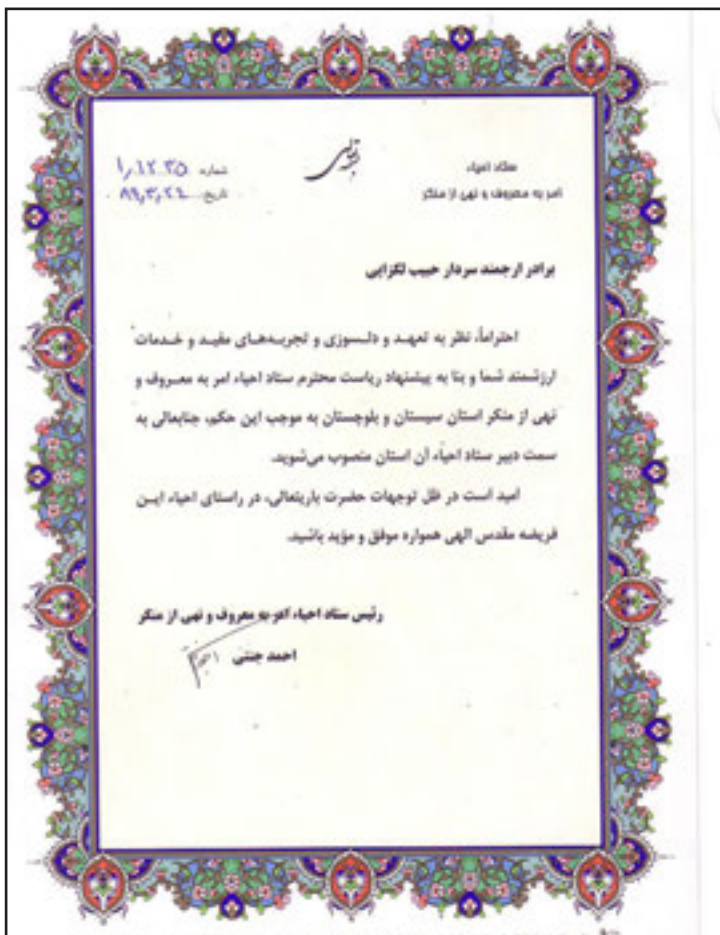 بسمه تعالی
ستاد احیاء
امر به معروف و نهی از منکر
شماره
تاریخ
برادر ارجمند سردار حبیب لکزایی
احتراماً، نظر به تعهد و دلسوزی و تجربه‌های مفید و خدمات
ارزشمند شما و بنا به پیشنهاد ریاست محترم ستاد احیاء امر به معروف و
نهی از منکر استان سیستان و بلوچستان به موجب این حکم، جنابعالی به
سمت دبیر ستاد احیاء آن استان منصوب می‌شوید.
امید است در ظل توجهات حضرت باریتعالی، در راستای احیاء این
فریضه مقدس الهی همواره موفق و مؤید باشید.
رئیس ستاد احیاء امر به معروف و نهی از منکر
احمد جنتی